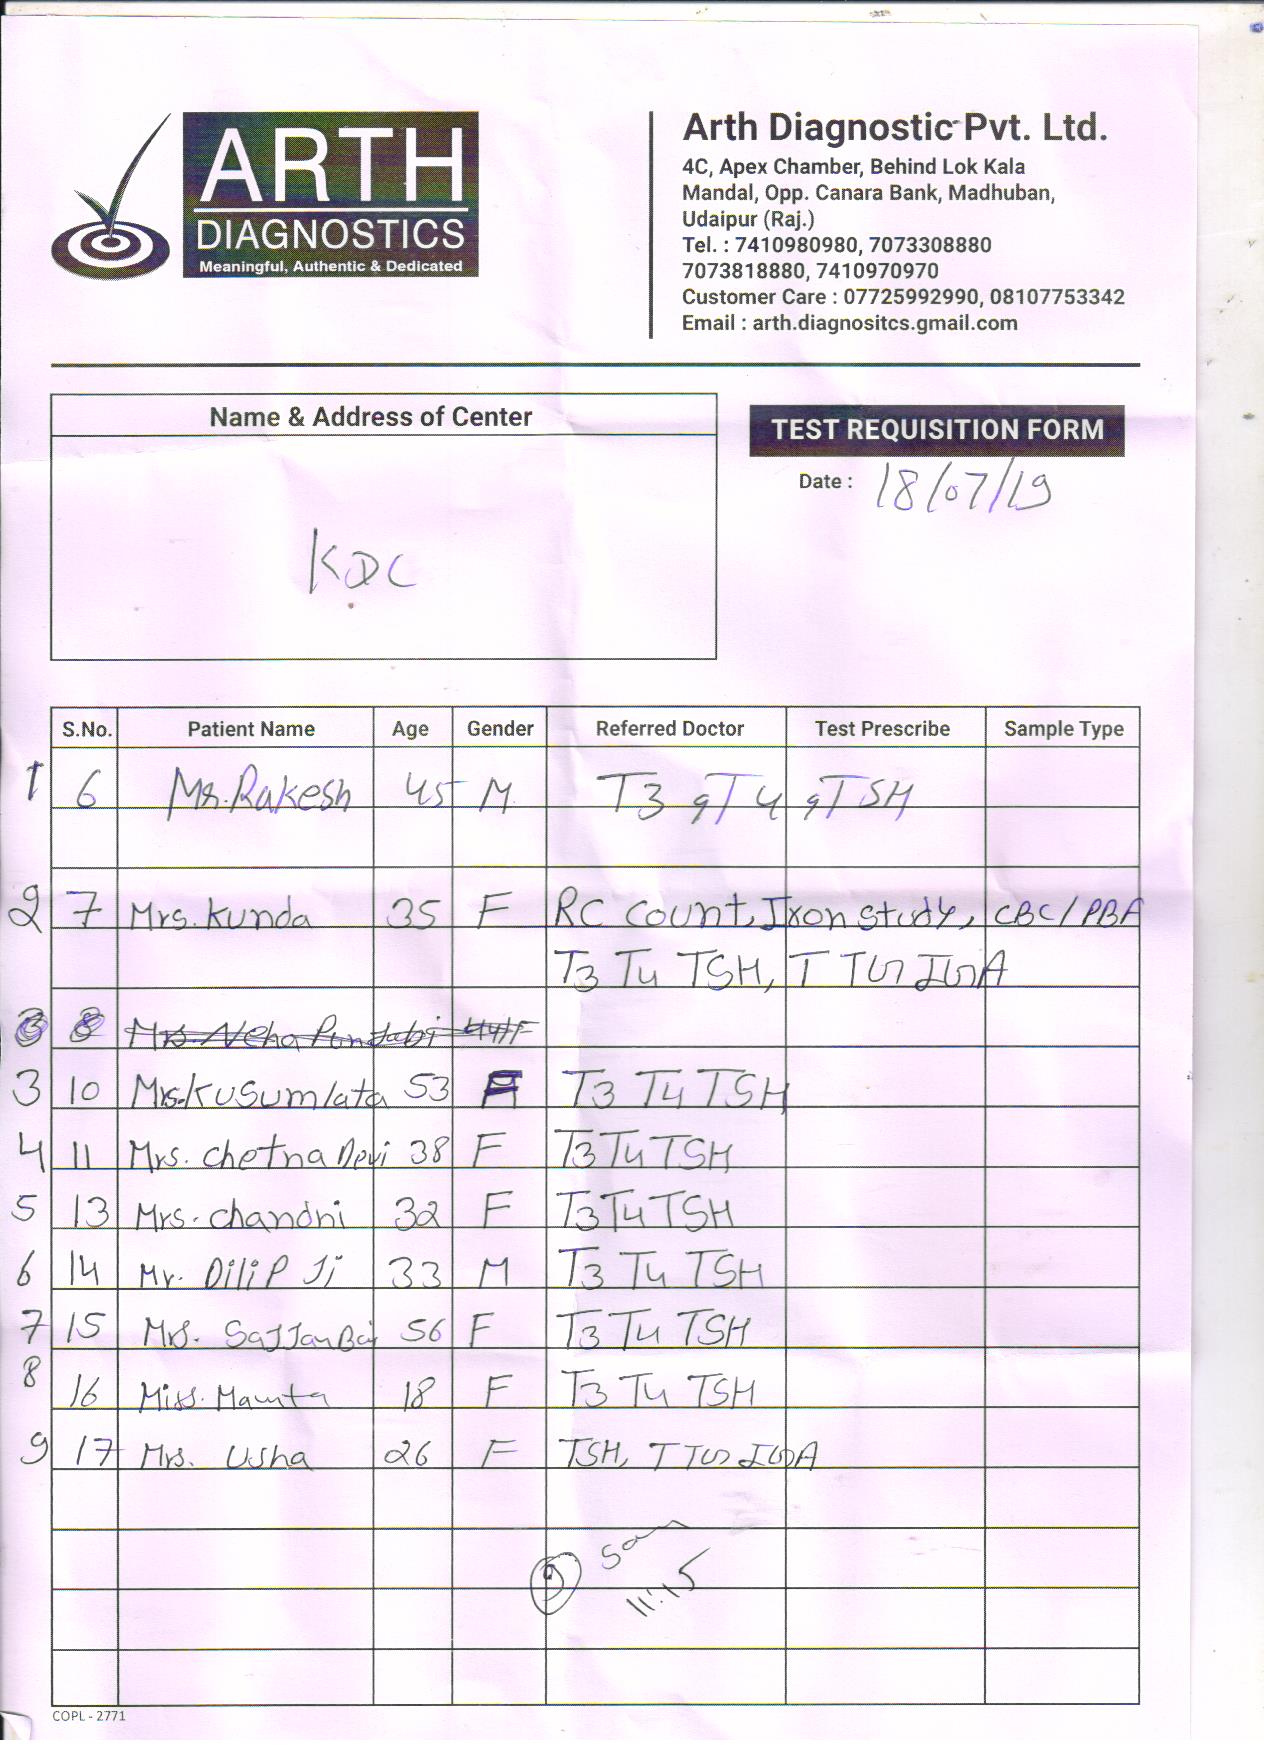 ARTH
DIAGNOSTICS
Meaningful, Authentic & Dedicated
Arth Diagnostic Pvt. Ltd.
4C, Apex Chamber, Behind Lok Kala
Mandal, Opp. Canara Bank, Madhuban,
Udaipur (Raj.)
Tel. : 7410980980, 7073308880
7073818880, 7410970970
Customer Care : 07725992990, 08107753342
Email : arth.diagnositcs.gmail.com
Name & Address of Center
KDC
TEST REQUISITION FORM
Date : 18/07/19
S.No. Patient Name Age Gender Referred Doctor Test Prescribe Sample Type
1 6 Mr. Rakesh 45 M T3, T4, TSH
2 7 Mrs. Kunda 35 F RC Count, Iron study, CBC/PBF
T3 T4 TSH, T
3 8 Mrs. Neha Punjabi 44/F
3 10 Mrs. Kusumlata 53 F T3 T4 TSH
4 11 Mrs. Chetna Devi 38 F T3 T4 TSH
5 13 Mrs. Chandni 32 F T3 T4 TSH
6 14 Mr. Dilip Ji 33 M T3 T4 TSH
7 15 Mrs. Sajjan Bai 56 F T3 T4 TSH
8 16 Miss. Mamta 18 F T3 T4 TSH
9 17 Mrs. Usha 26 F TSH, T
11:15
COPL - 2771